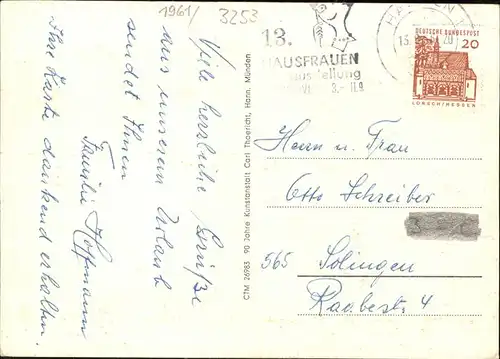 1961/ 3253
Viele herzliche Grüße
aus unserem Urlaub
sendet Ihnen
Familie Hoffmann
Ihre Karte dankend erhalten.
13.
HAUSFRAUEN
3.-11.9
DEUTSCHE BUNDESPOST
20
LORSCH/HESSEN
CTM 26983 90 Jahre Kunstanstalt Carl Thoericht, Hann. Münden
Herrn u. Frau
Otto Schreiber
565 Solingen
Raabestr. 4